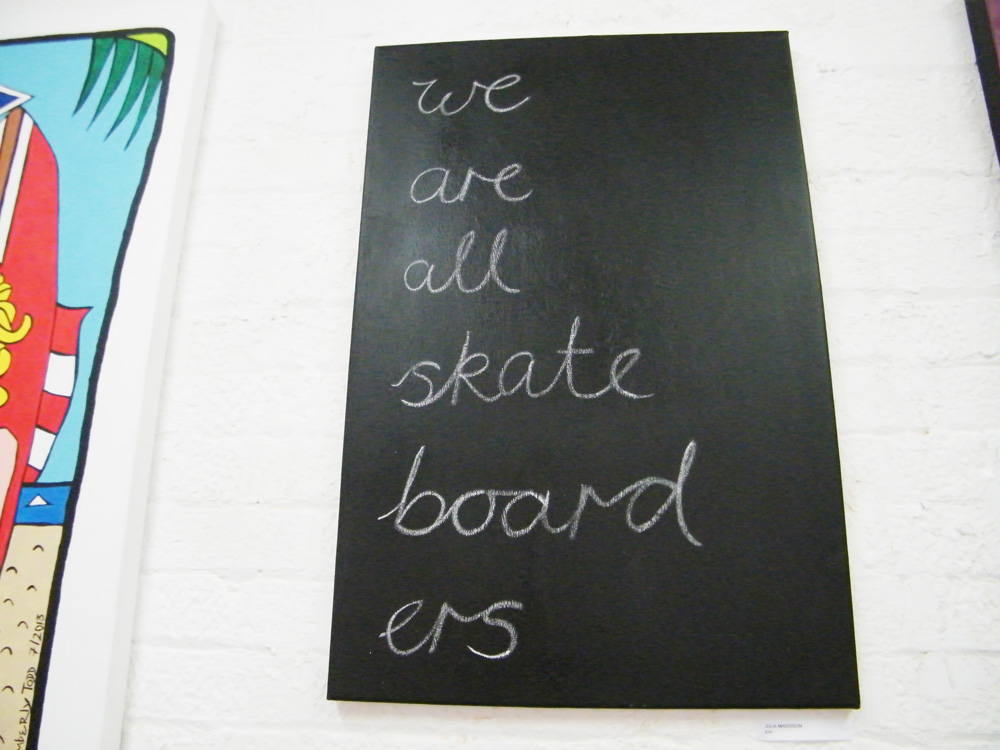 we
are
all
skate
board
ers
TODD 7/2013